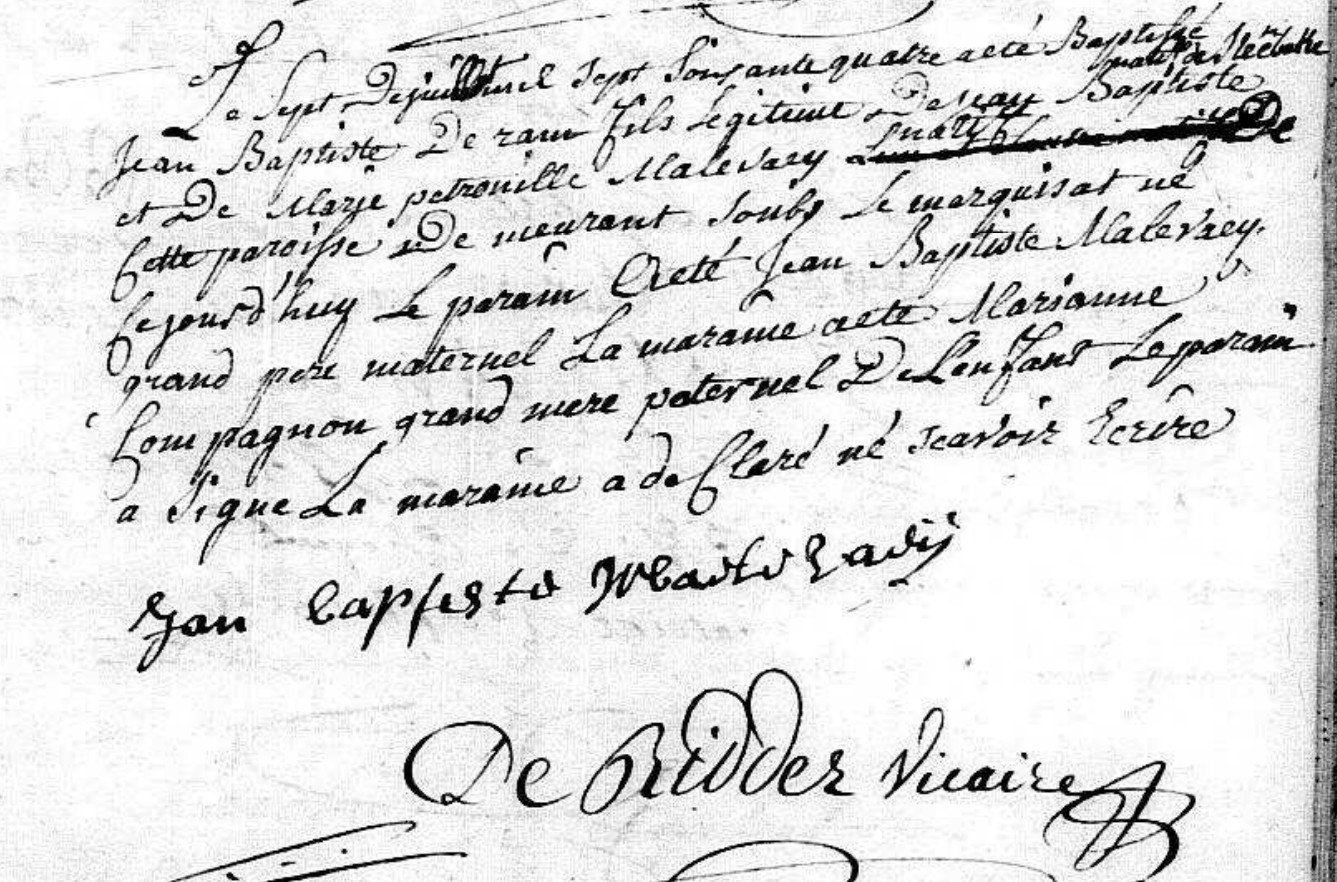 Le Sept De juillet mil Sept Soixante quatre a eté Baptisé
natif de Steēbeke
Jean Baptiste De ram fils Légitime De Jean Baptiste
et De Marie petronille Malevaey natif De
Cette paroisse De meurant soubs Le marquisat né
Cejourd'huy Le parain a eté Jean Baptiste Malevaey
grand pere maternel La maraine a eté Marianne
Compagnon grand mere paternel De Lenfant Le parain
a Signe La maraine a de Claré né scavoir Ecrire
Jan bapteste
De Ridder Vicaire